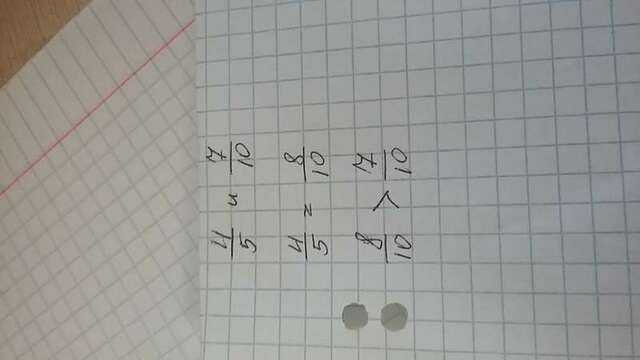 4/5 и 7/10
4/5 = 8/10
8/10 > 7/10